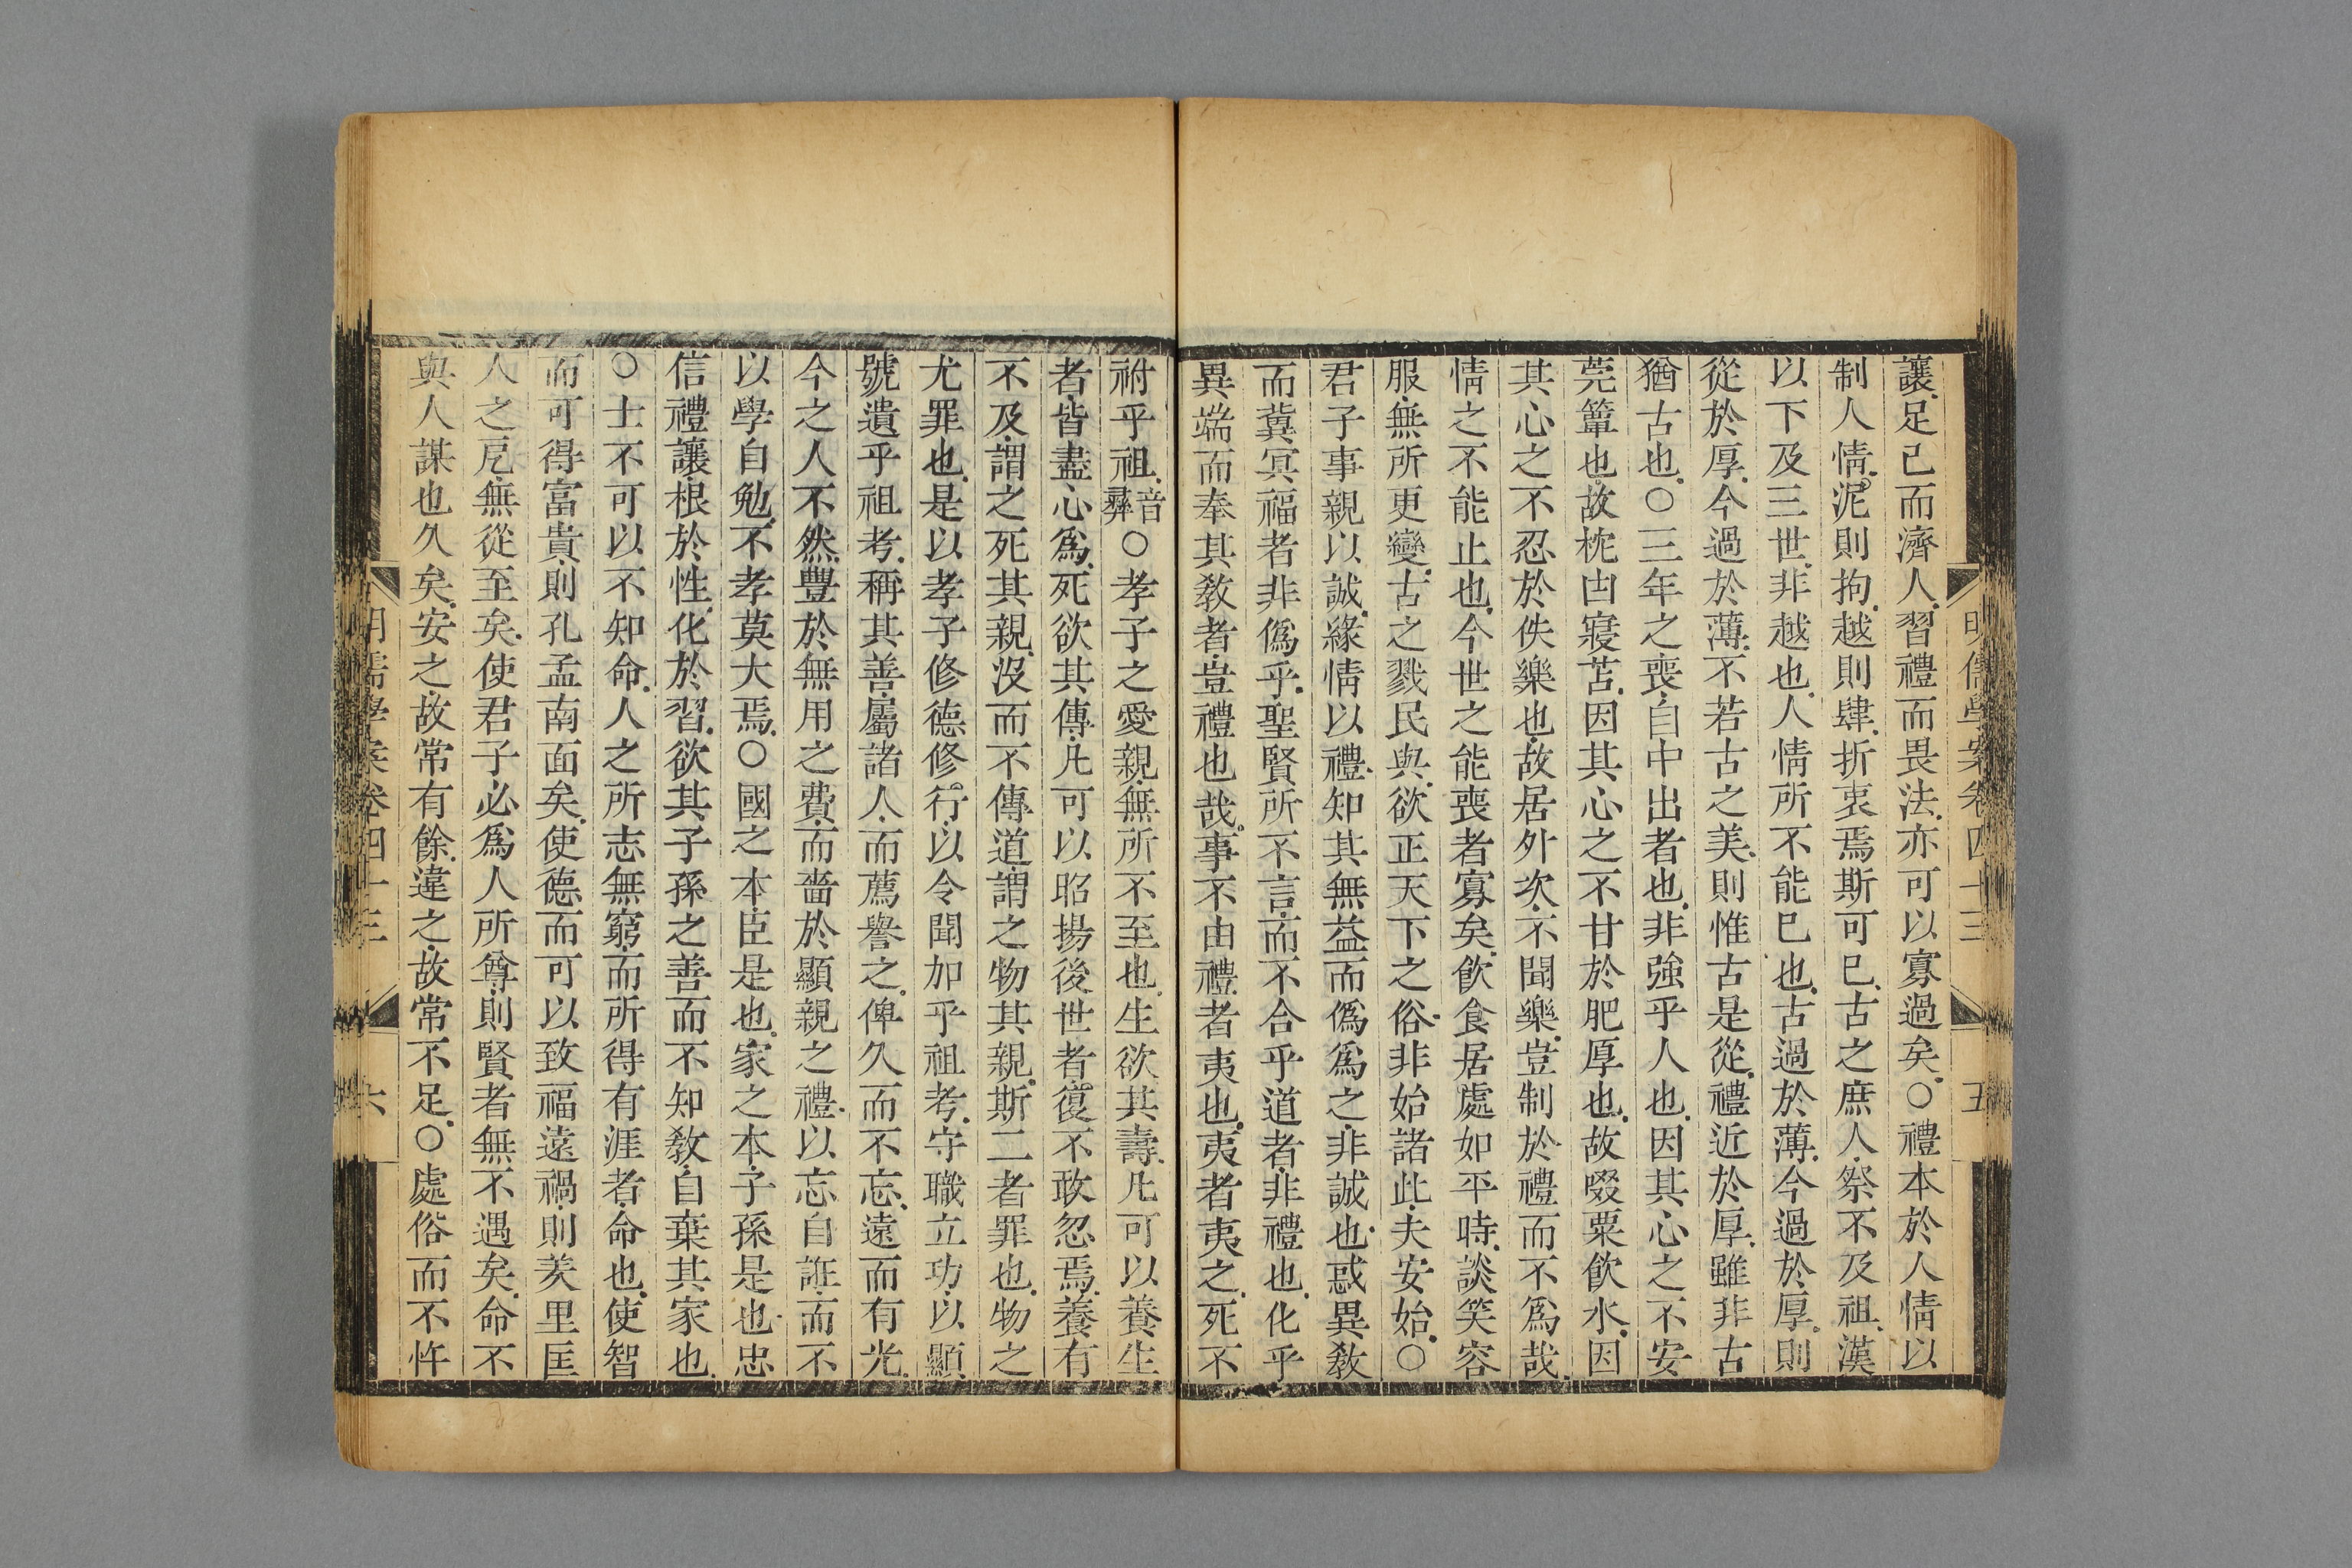 讓足己而濟人習禮而畏法亦可以寡過矣○禮本於人情以
制人情泥則拘越則肆折衷焉斯可已古之庶人祭不及祖漢
以下及三世非越也人情所不能已也古過於薄今過於厚則
從於厚今過於薄不若古之美則惟古是從禮近於厚雖非古
猶古也○三年之喪自中出者也非強乎人也因其心之不安
莞簟也故枕凷寢苫因其心之不甘於肥厚也故啜粟飲水因
其心之不忍於佚樂也故居外次不聞樂豈制於禮而不爲哉
情之不能止也今世之能喪者寡矣飲食居處如平時談笑容
服無所更變古之戮民與欲正天下之俗非始諸此夫安始○
君子事親以誠緣情以禮知其無益而僞爲之非誠也惑異敎
而冀冥福者非僞乎聖賢所不言而不合乎道者非禮也化乎
異端而奉其敎者豈禮也哉事不由禮者夷也夷者夷之死不
祔乎祖音彝○孝子之愛親無所不至也生欲其壽凡可以養生
者皆盡心爲死欲其傳凡可以昭揚後世者復不敢忽焉養有
不及謂之死其親沒而不傳道謂之物其親斯二者罪也物之
尤罪也是以孝子修德修行以令聞加乎祖考守職立功以顯
號遺乎祖考稱其善屬諸人而薦譽之俾久而不忘遠而有光
今之人不然豐於無用之費而嗇於顯親之禮以忘自誑而不
以學自勉不孝莫大焉○國之本臣是也家之本子孫是也忠
信禮讓根於性化於習欲其子孫之善而不知敎自棄其家也
○士不可以不知命人之所志無窮而所得有涯者命也使智
而可得富貴則孔孟南面矣使德而可以致福遠禍則羑里匡
人之戹無從至矣使君子必爲人所尊則賢者無不遇矣命不
與人謀也久矣安之故常有餘違之故常不足○處俗而不忤
明儒學案卷四十三
五
明儒學案卷四十三
六